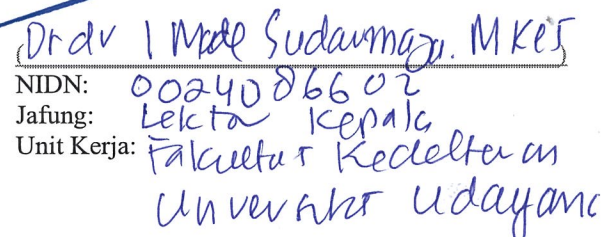 (Dr dr I Made Sudarmaja. MKes)
NIDN: 0024086602
Jafung: Lektor Kepala
Unit Kerja: Fakultas Kedokteran
Universitas Udayana